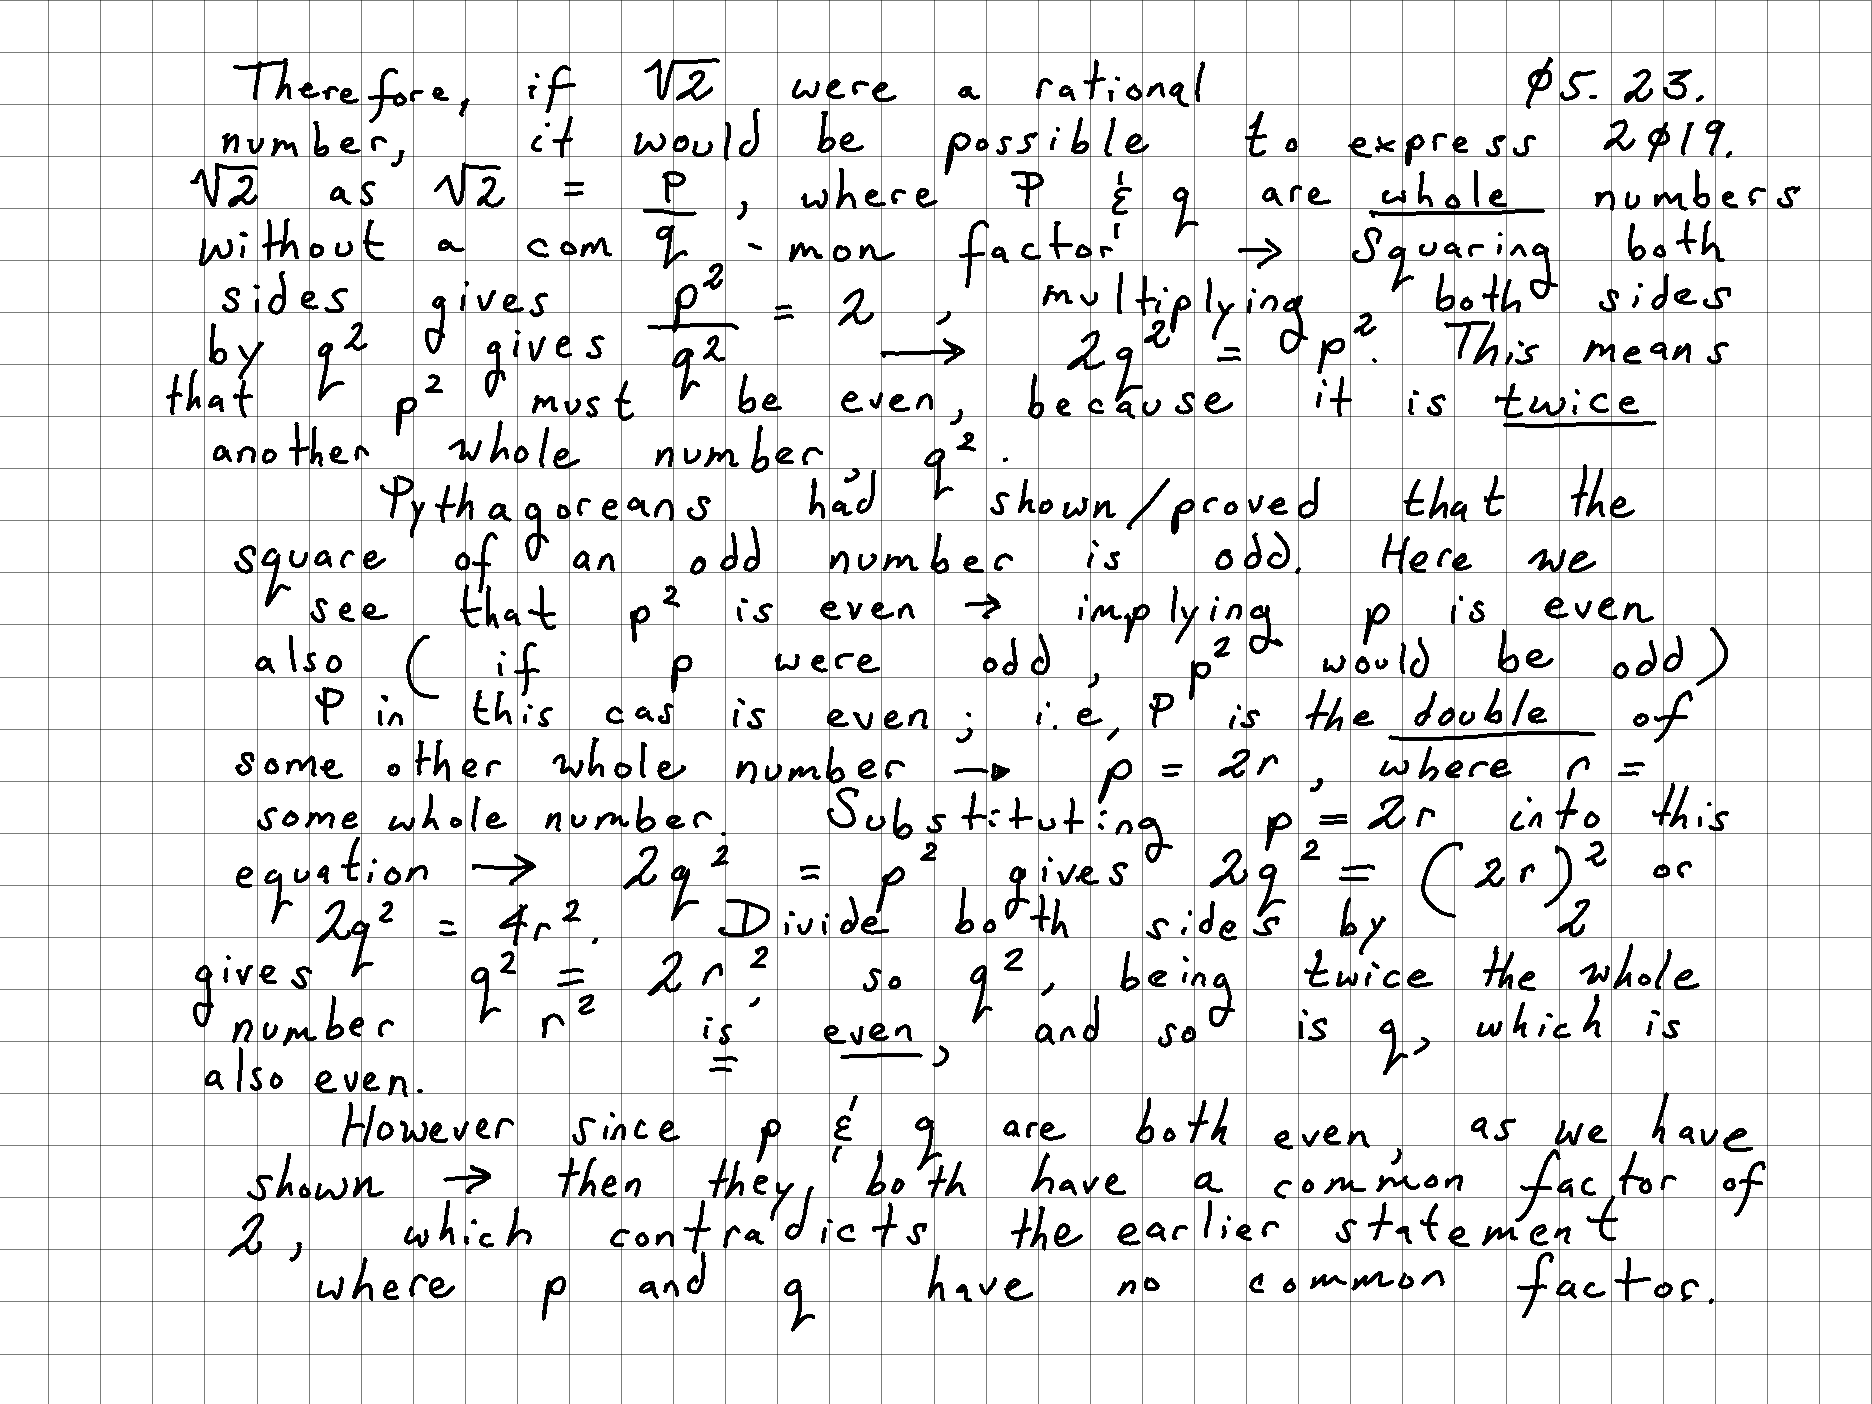 Therefore, if √2 were a rational ø5. 23.
number, it would be possible to express 2ø19.
√2 as √2 = p/q, where P & q are whole numbers
without a com -mon factor → Squaring both
sides gives p²/q² = 2, multiplying both sides
by q² gives → 2q² = p². This means
that p² must be even, because it is twice
another whole number, q².
Pythagoreans had shown/proved that the
square of an odd number is odd. Here we
see that p² is even → implying p is even
also (if p were odd, p² would be odd)
P in this cas is even; i.e, P is the double of
some other whole number → p = 2r, where r =
some whole number. Substituting p = 2r into this
equation → 2q² = p² gives 2q² = (2r)² or
2q² = 4r². Divide both sides by 2
gives q² = 2r², so q², being twice the whole
number r² is even, and so is q, which is
also even.
However since p & q are both even, as we have
shown → then they both have a common factor of
2, which contradicts the earlier statement
where p and q have no common factor.